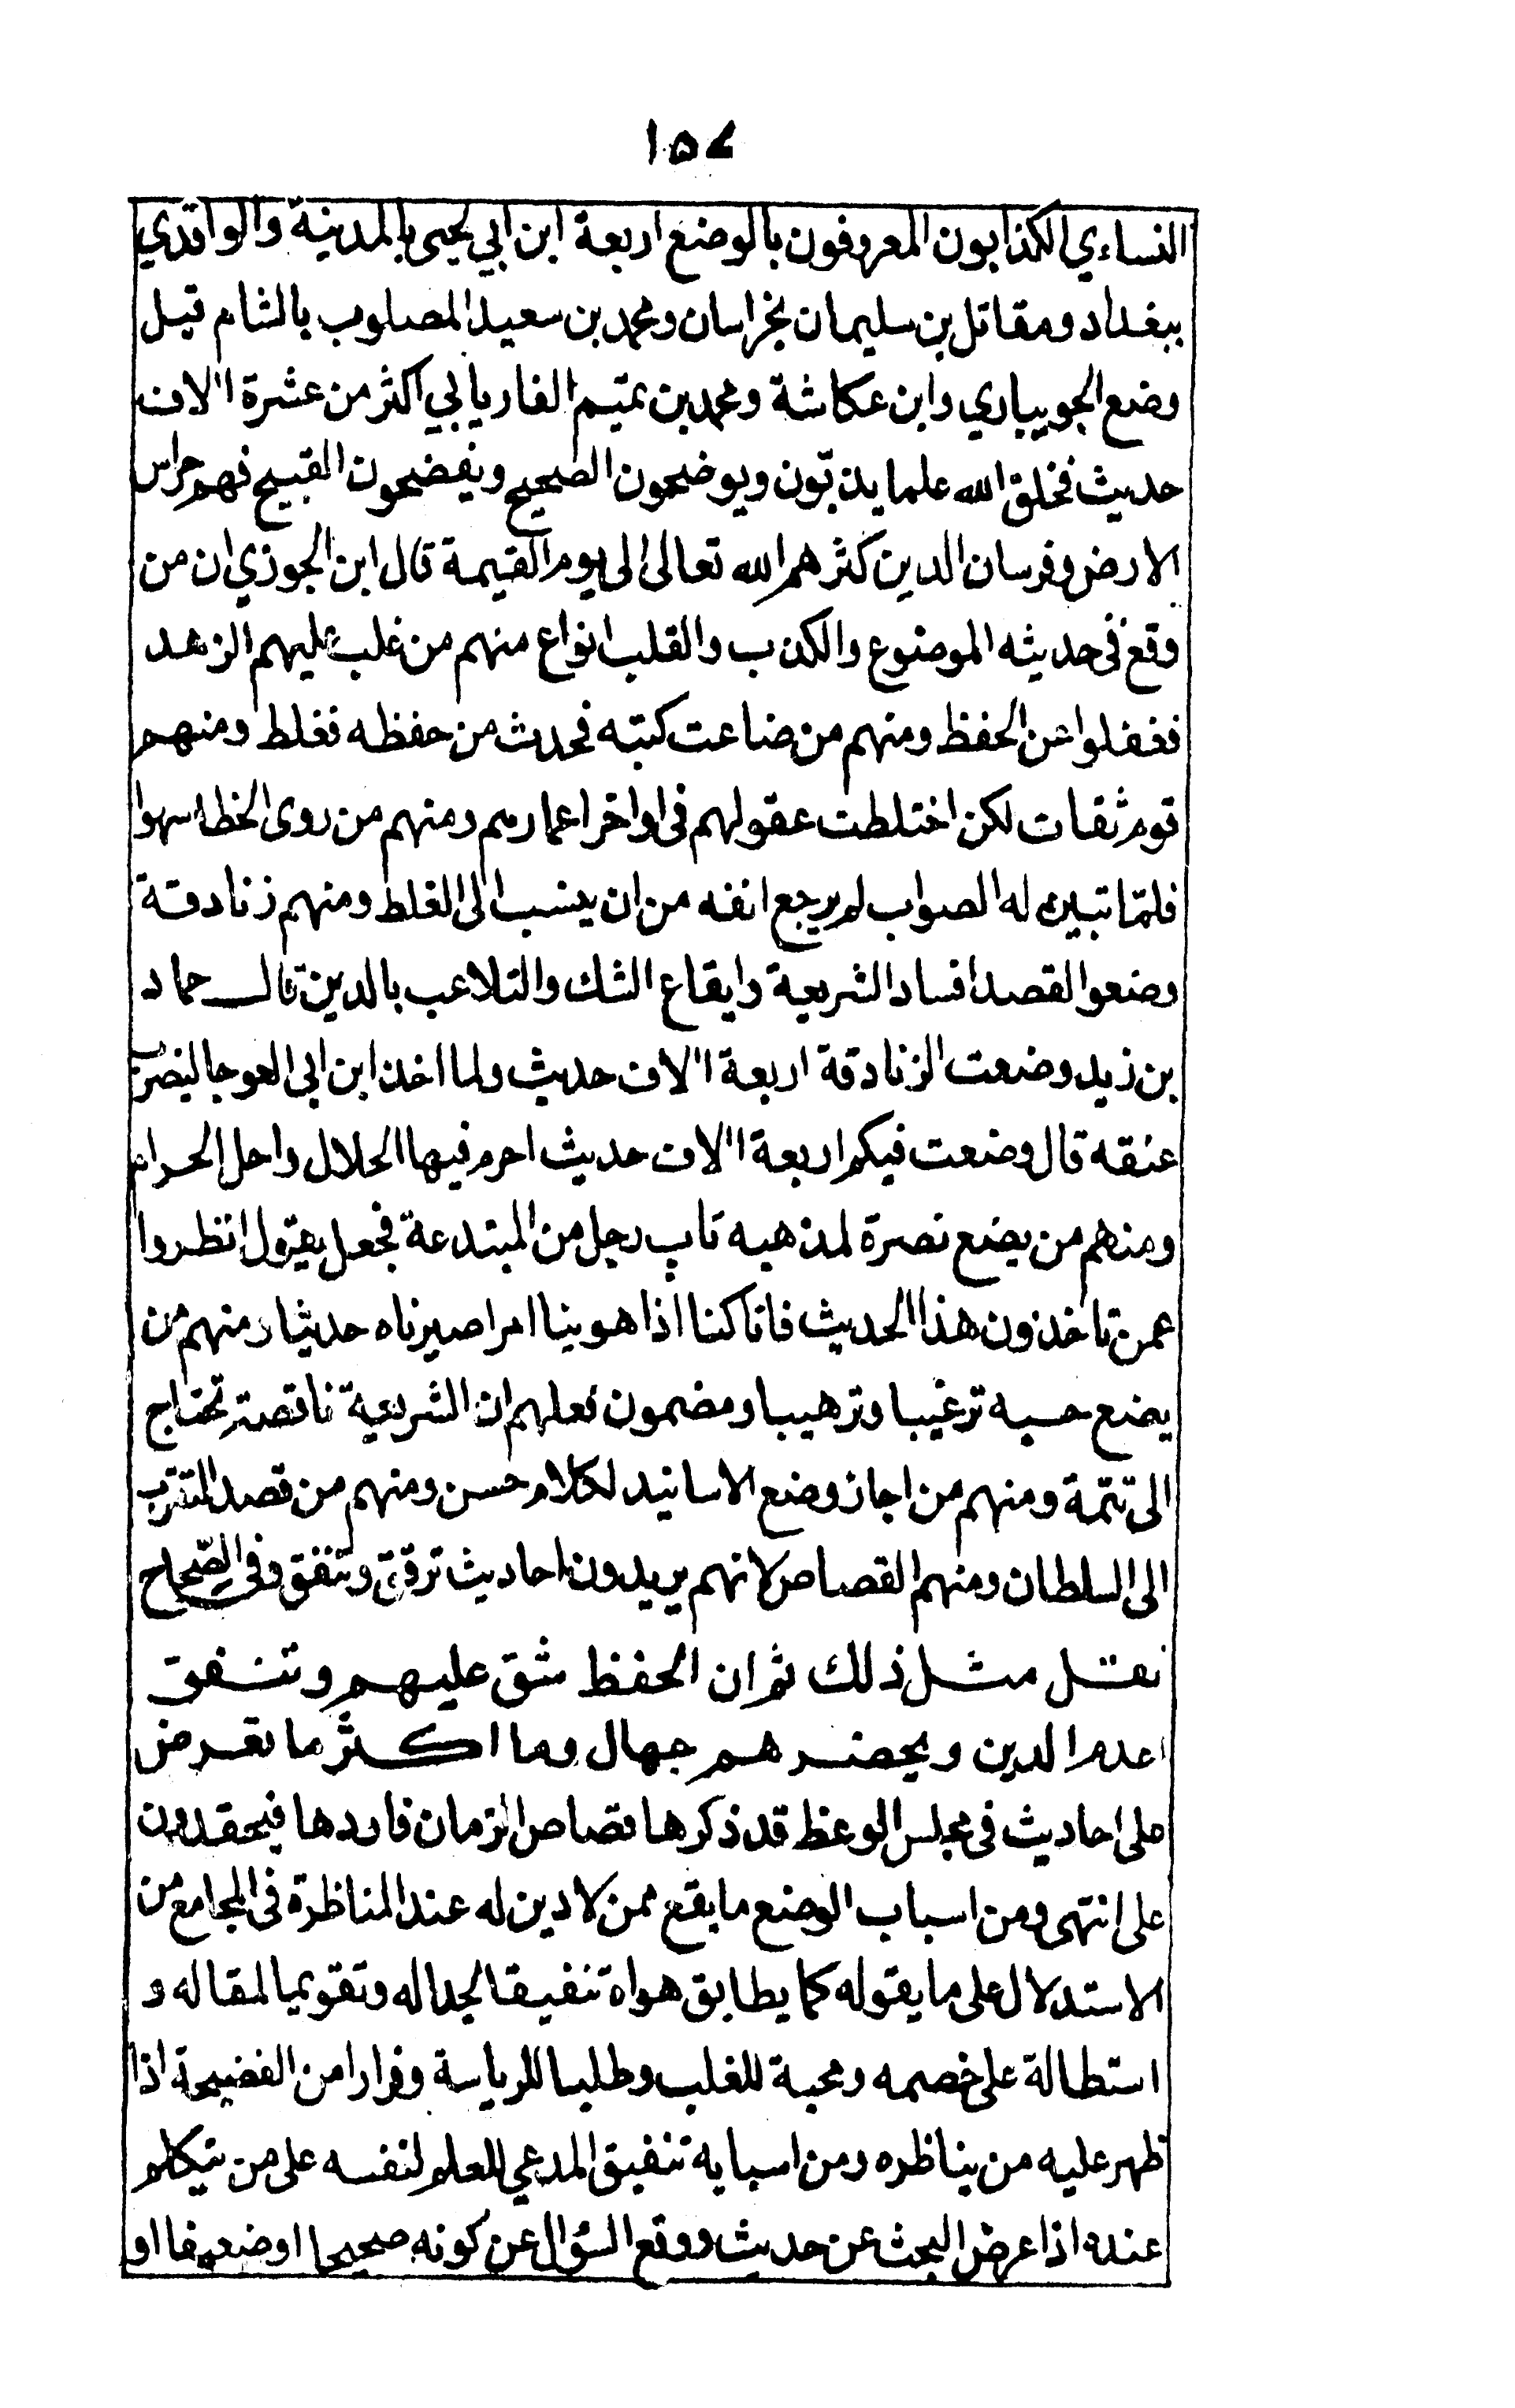 ١٥٧
النساءي الكذابون المعروفون بالوضع اربعة ابن ابي يحيى بالمدينة والواقدي
ببغداد ومقاتل بن سليمان بخراسان ومحمد بن سعيد المصلوب بالشام قيل
وضع الجويباري وابن عكاشة ومحمد بن تميم الفاريابي اكثر من عشرة الاف
حديث فخلق الله علما يذبّون ويوضحون الصحيح ويفضحون القبيح فهم حراس
الارض وفرسان الدين كثرهم الله تعالى الى يوم القيمة قال ابن الجوزي ان من
وقع فى حديثه الموضوع والكذب والقلب انواع منهم من غلب عليهم الزهد
فغفلوا عن الحفظ ومنهم من ضاعت كتبه فحدث من حفظه فغلط ومنهم
قوم ثقات لكن اختلطت عقولهم فى اواخر اعمارهم ومنهم من روى الخطا سهوا
فلمّا تبين له الصواب لم يرجع انفه من ان ينسب الى الغلط ومنهم زنادقة
وضعوا لقصد افساد الشريعة وايقاع الشك والتلاعب بالدين قال حماد
بن زيد وضعت الزنادقة اربعة الاف حديث ولما اخذ ابن ابى العوجا ليضرب
عنقه قال وضعت فيكم اربعة الاف حديث احرم فيها الحلال واحل الحرام
ومنهم من يضع نصرة لمذهبه تاب رجل من المبتدعة فجعل يقول انظروا
عمن تاخذون هذا الحديث فانا كنا اذا هوينا امرا صيرناه حديثا ومنهم من
يضع حسبه ترغيبا وترهيبا ومضمون فعلهم ان الشريعة ناقصة تحتاج
الى تتمة ومنهم من اجاز وضع الاسانيد لكلام حسن ومنهم من قصد التقرب
الى السلطان ومنهم القصاص لانهم يريدون احاديث ترقق وتنفق وفى الصّحاح
نقل مثل ذلك ثم ان الحفظ شق عليهم وتنفق
اعدم الدين ويحضرهم جهال وما اكثر ما تعرض
على احاديث فى مجلس الوعظ قد ذكرها قصاص الزمان فاردها فيحقدون
على انتهى ومن اسباب الوضع ما يقع ممن لا دين له عند المناظرة فى المجامع من
الاستدلال على ما يقوله كما يطابق هواه تنفيقا لجداله وتقويما لمقاله و
استطالة على خصمه ومحبة للغلب وطلبا للرياسة وفرارا من الفضيحة اذا
ظهر عليه من يناظره ومن اسبابه تنفيق المدعي للعلم لنفسه على من يتكلم
عنده اذا عرض البحث عن حديث ووقع السؤال عن كونه صحيحا او ضعيفا او